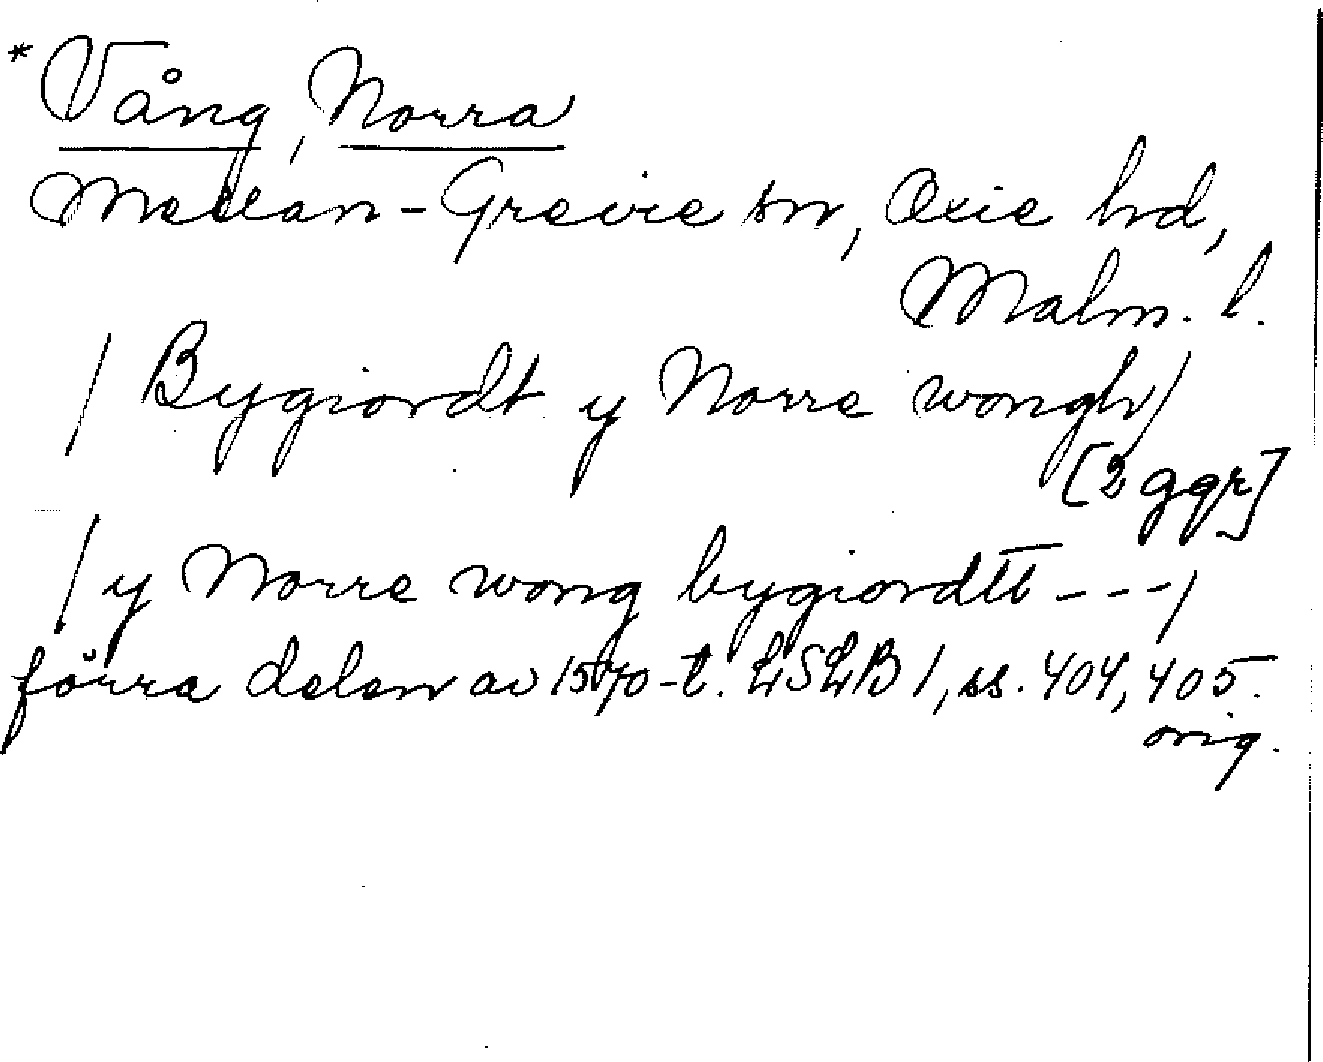 * Vång, Norra
Mellan-Grevie sn, Oxie hd,
Malm. l.
/ Bygiordt y Norre wongh /
[2 ggr]
/ y Norre wong bygiordtt --- /
förra delen av 1570-t. LSLB 1, ss. 404, 405.
orig.